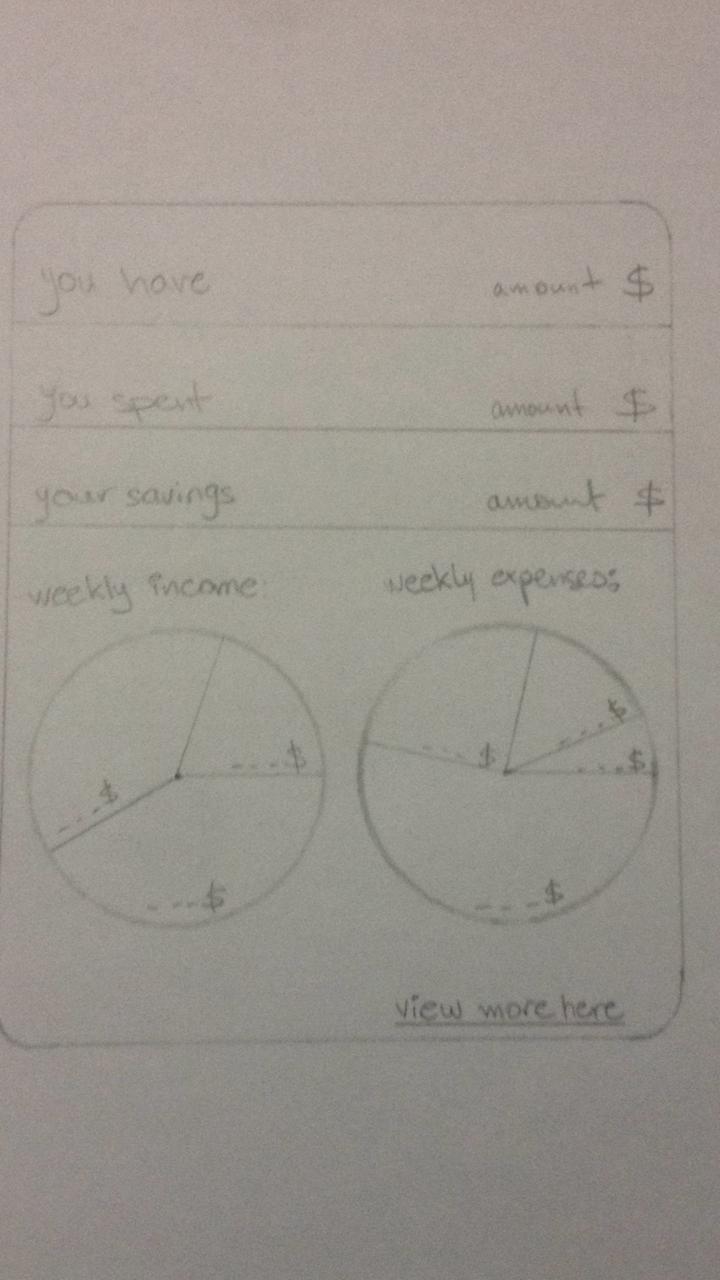 you have amount $
you spent amount $
your savings amount $
weekly income:
weekly expenses:
---$
---$
---$
---$
---$
---$
---$
view more here